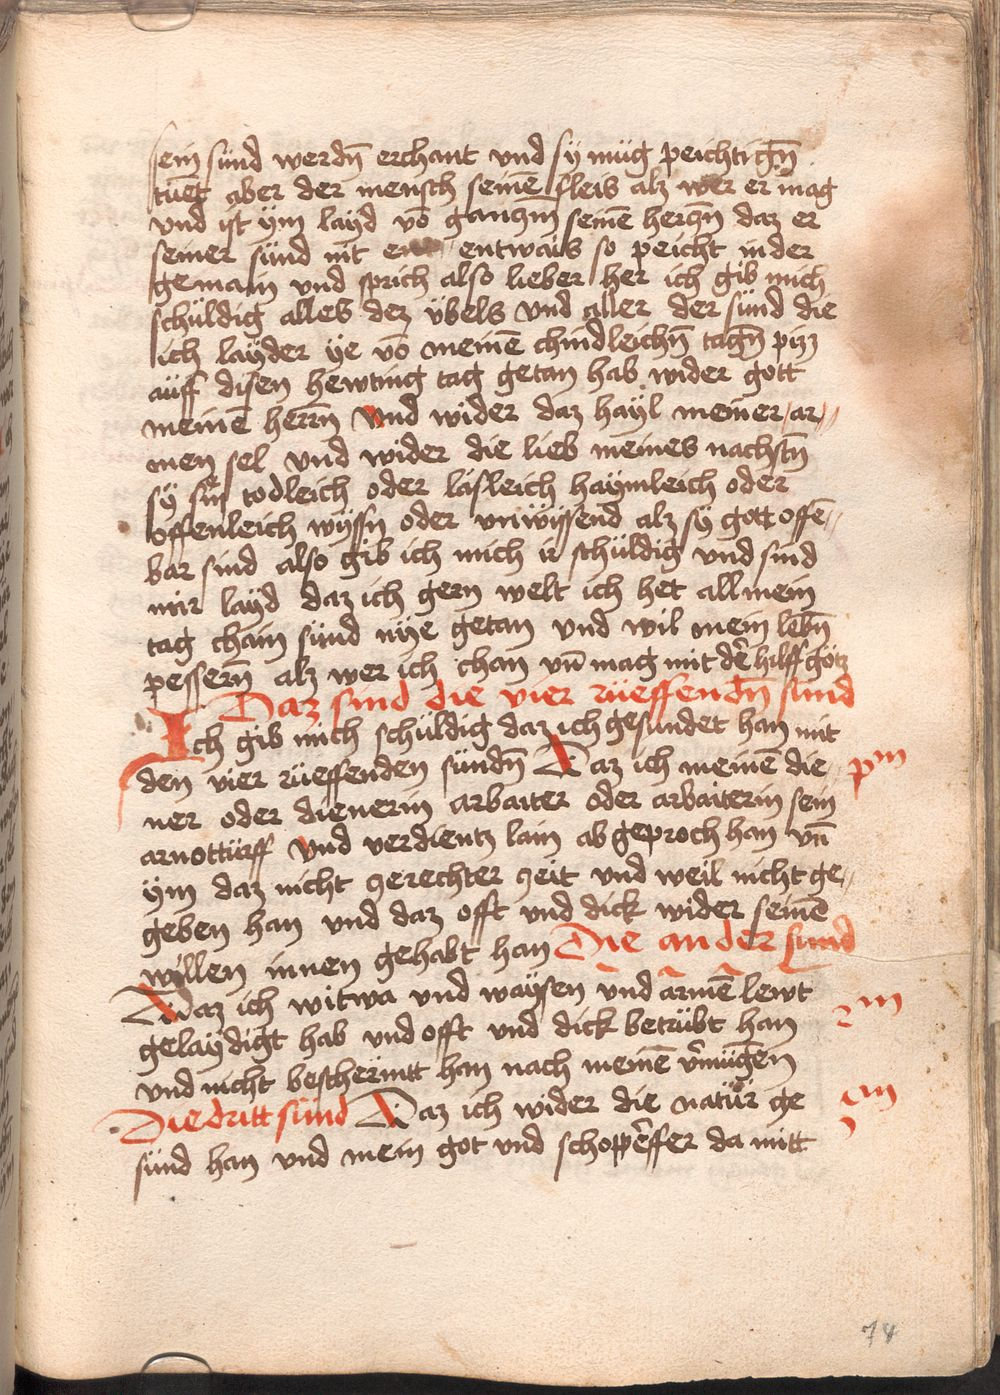 sein sünd werdn̄ erchant vnd sy müg peichtign̄
tuet aber der mensch seinē fleis alz wer er mag
vnd ist ym layd vō ganczm̄ seinē herczn̄ daz er
seiner sünd nit entwais so peicht in der
gemain vnd sprich also lieber her ich gib mich
schüldig alles dez übels vnd aller der sünd die
ich layder ye vō meinē chindleichn̄ tagn̄ pizz
auff disen hewting tag getan hab wider gott
meinē herrn̄ vnd wider daz hayl meiner ar„
men sel vnd wider die lieb meines nachstn̄
sy sin todleich oder lasleich haymleich oder
offenleich wyssn oder vnwissend alz sy gott offē„
bar sind also gib ich mich ir schüldig vnd sind
mir layd daz ich gern welt ich het all mein
tag chain sünd nye getan vnd wil mein lebn̄
pessern̄ alz wer ich chan vn̄ mag mit dē hilff gotz
Daz sind die vier rüeffendn̄ sünd
Ich gib mich schüldig daz ich gesundet han mit
den vier rüeffenden sündn̄ Daz ich meinē die„ pm
ner oder dienerin arbaiter oder arbaiterin sein
arnottürff vnd verdientz lain ab geproch han vn̄
ym daz nicht czerechter czeit vnd weil nicht ge„
geben han vnd daz offt vnd dick wider seinē
willen innen gehabt han Die ander sünd
Daz ich witwa vnd waysen vnd armē lewt 2m
gelaydigt hab vnd offt vnd dick betrübt han
vnd nicht beschermtt han nach meinē v̄mügen
Die dritt sünd Daz ich wider die natür ge 3m
sünd han vnd mein got vnd schoppēffer da mitt
74